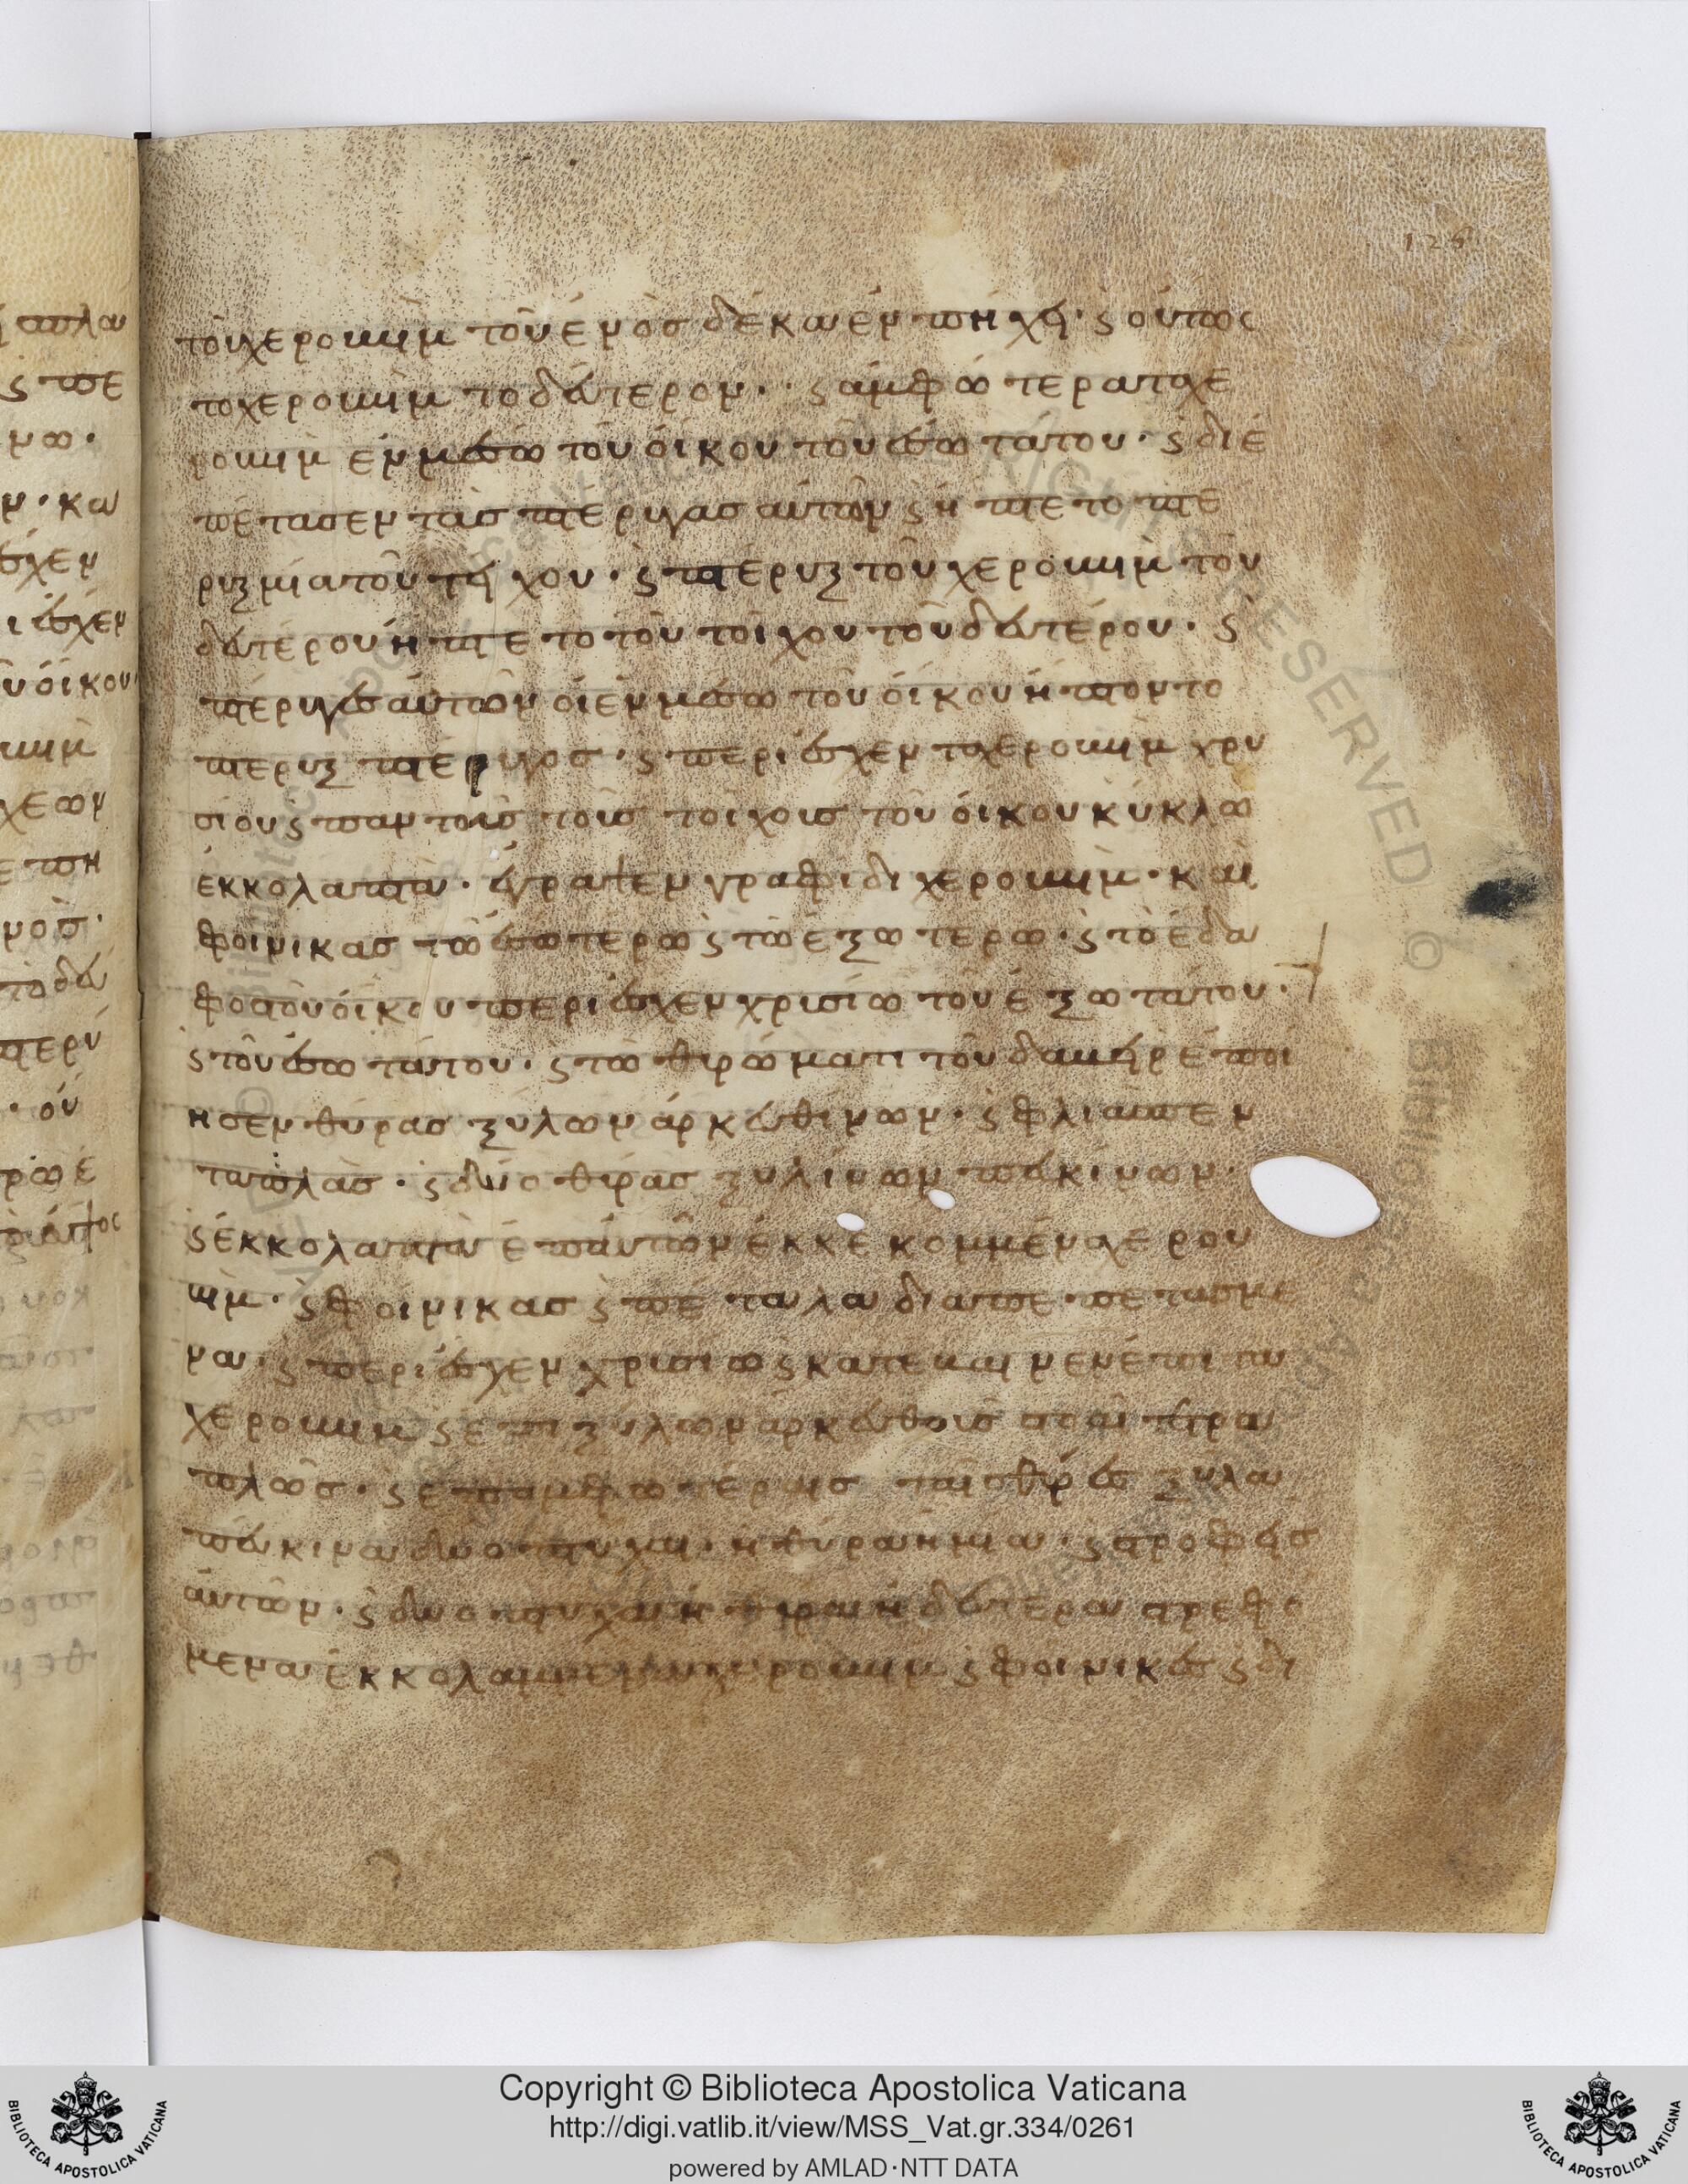 126
τοῦ χερουβὶμ τοῦ ἑνὸς δέκα ἐν πήχει· ς οὕτως
το χερουβὶμ το δεύτερον· ς ἀμφώτερα τα χε
ρουβιμ ἐν μέσω τοῦ ὀίκου τοῦ ἐσωτάτου· ς διέ
πέτασεν τὰς πτέρυγας αὐτῶν ς ἥπτετο πτέ
ρυξ μία τοῦ τοίχου· ς πτέρυξ τοῦ χερουβὶμ τοῦ
δευτέρου ἥπτετο τοῦ τοίχου τοῦ δευτέρου· ς
πτέρυγες αὐτῶν ὁι ἐν μέσω τοῦ ὀίκου ἥπτοντο
πτέρυξ πτέρυγος· ς περιέσχεν τα χερουβιμ χρυ
σίου ς παντας τοὺς τοίχους τοῦ ὀίκου κύκλω
ἐκκολαπτα· ἔγραψεν γραφίδι χερουβιμ· καὶ
φοίνικας τῶ ἐσωτέρω ς τῶ ἐξωτέρω· ς τὸ ἔδα
φος τοῦ ὀίκου περιέσχεν χρυσίω τοῦ ἐξωτάτου·
ς τοῦ ἐσωτάτου· ς τῶ θυρώματι τοῦ δαβὴρ ἐποί
ησεν θύρας ξύλων ἀρκευθίνων· ς φλιὰς πεν
ταπλὰς· ς δύο θύρας ξυλίνων πευκίνων·
ς ἐκκολαπτὰ ἐπ αὐτῶν ἐκκεκομμένα χερου
βὶμ· ς φοίνικας ς πέταλα διαπεπετασμέ
να· ς περιέσχεν χρυσίω ς κατέβαινεν ἐπι τα
χερουβιμ ς ἐπι ξύλων ἀρκευθοις στοαὶ τετρα
πλῶς· ς ἐπ αμφωτέραις ταῖς θύραις ξύλα
πεύκινα δύο πτυχαι· ἡ θύρα ἡ μία· ς στροφεῖς
αὐτῶν· ς δύο πτυχαὶ ἡ θύρα ἡ δευτέρα στρεφό
μενα ἐκκολαμμένα χερουβιμ ς φοίνικας ς δι
Copyright © Biblioteca Apostolica Vaticana
http://digi.vatlib.it/view/MSS_Vat.gr.334/0261
powered by AMLAD·NTT DATA
BIBLIOTECA APOSTOLICA VATICANA
BIBLIOTECA APOSTOLICA VATICANA